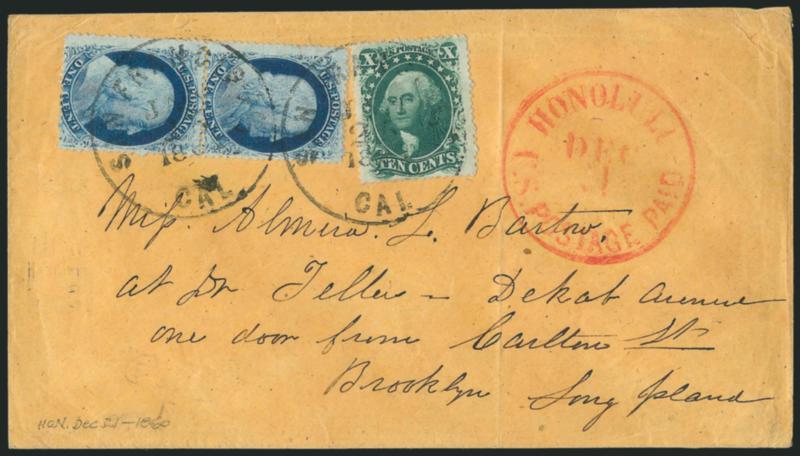 ONE CENT
U.S. POSTAGE
ONE CENT
U.S. POSTAGE
X U.S. POSTAGE X
TEN CENTS
SAN FRAN
CAL
SAN
CAL
HONOLULU
DEC
U.S. POSTAGE PAID
Miss Almira L. Bartow,
at Dr Tellers - Dekab Avenue
one door from Carlton St
Brooklyn Long Island
HON. Dec 1860